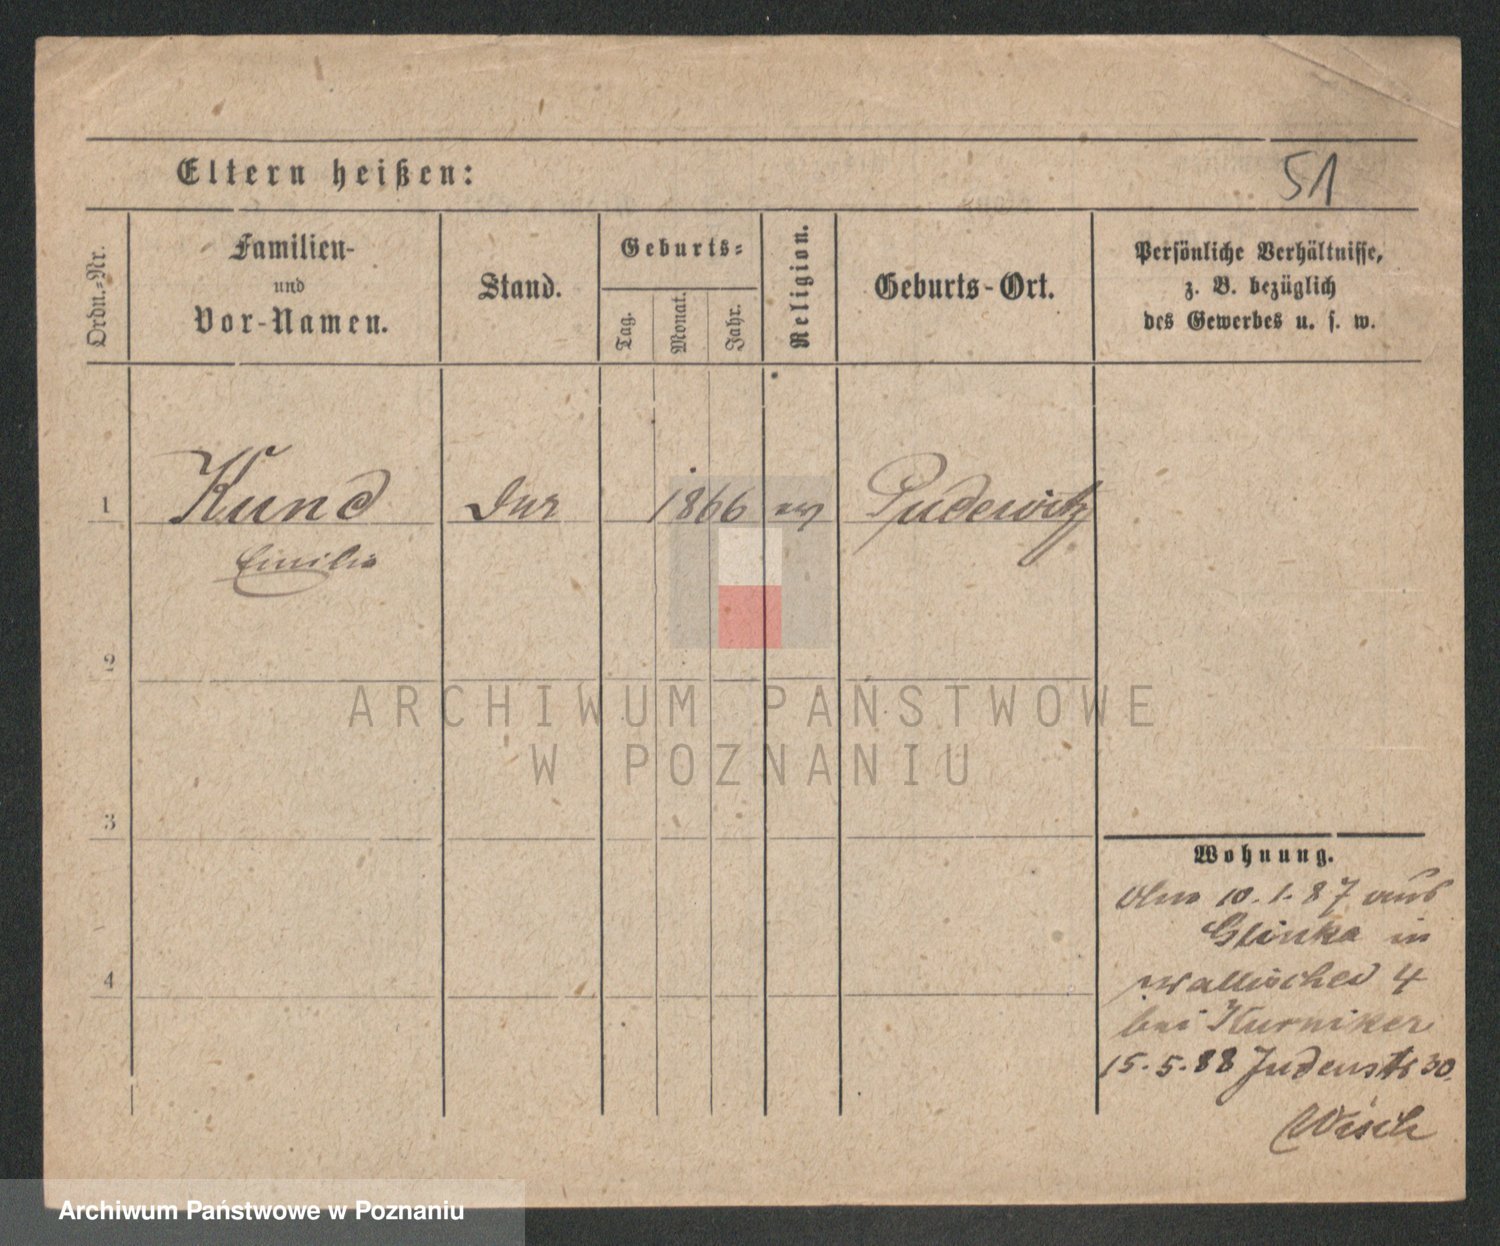 51
Eltern heißen:
Ordn.-Nr.
Familien-
und
Vor-Namen.
Stand.
Geburts-
Tag.
Monat.
Jahr.
Religion.
Geburts-Ort.
Persönliche Verhältnisse,
z. B. bezüglich
des Gewerbes u. s. w.
1
Kund
1866
Pudewitz
Emilie
2
ARCHIWUM PAŃSTWOWE
W POZNANIU
3
Wohnung.
10.1.87 aus
Glinka in
Wallischei 4
bei Kurniker
4
15.5.88 Judenstr 30.
Archiwum Państwowe w Poznaniu